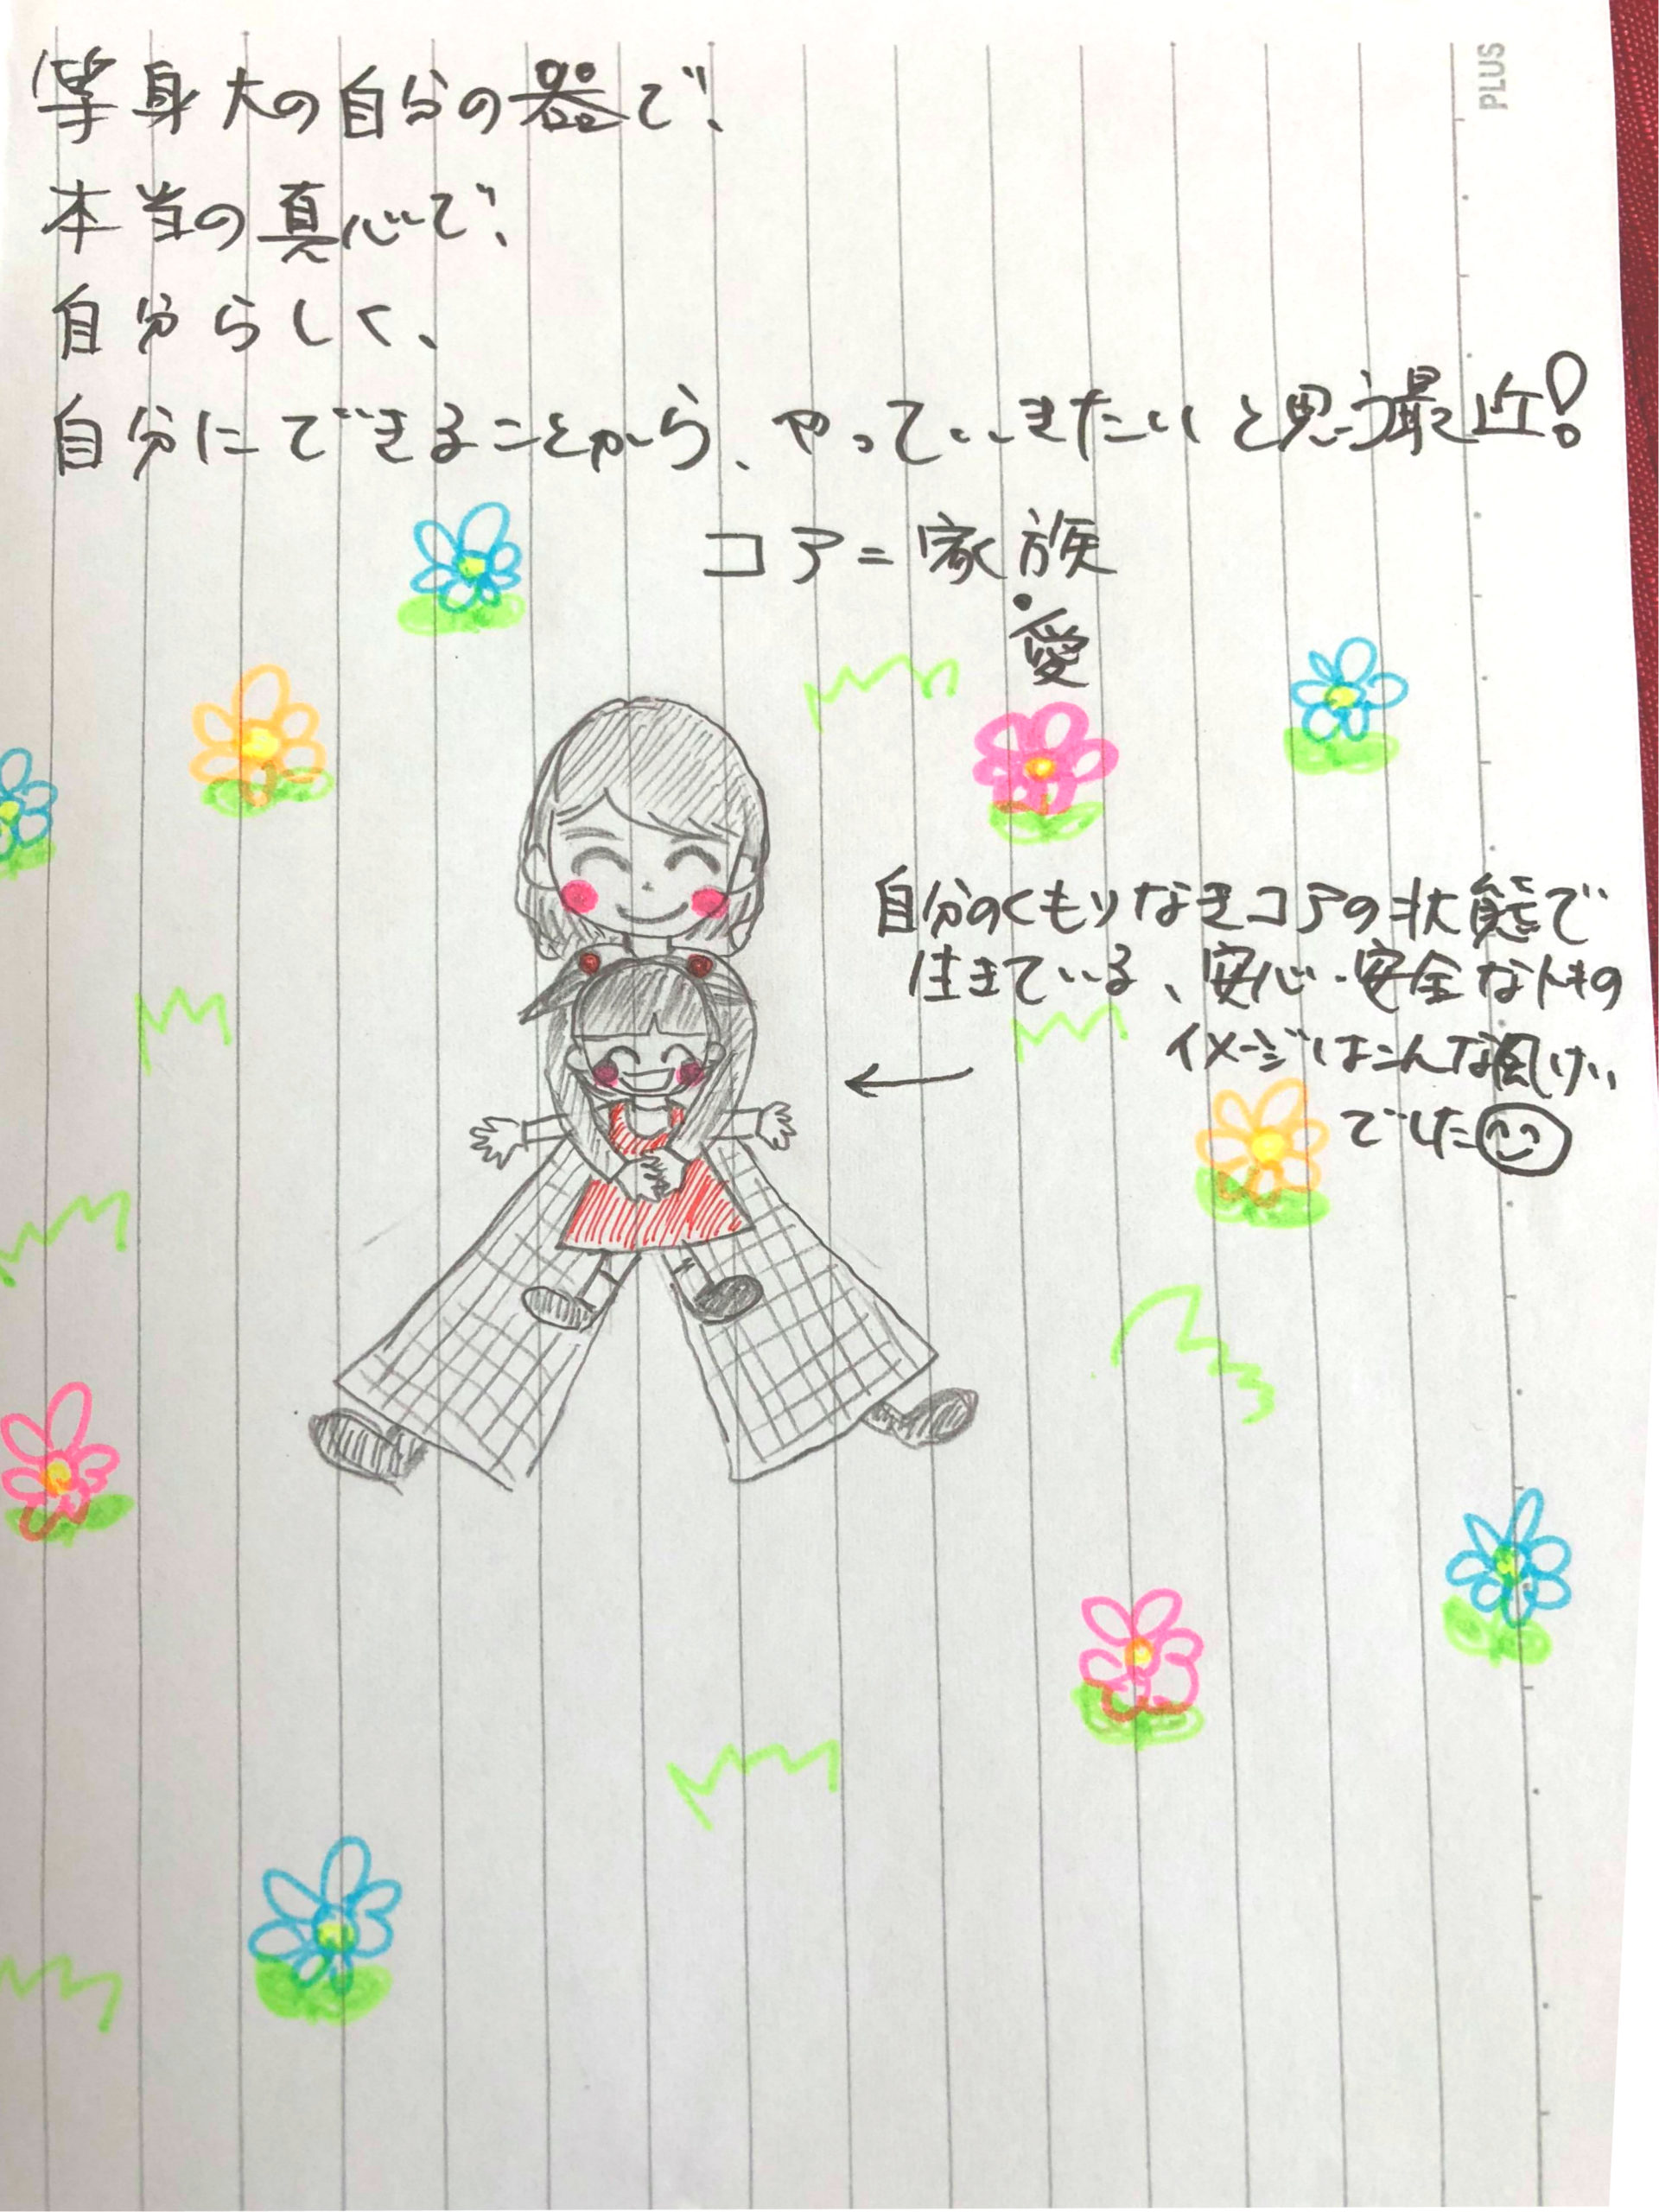 等身大の自分の器で、
本当の真心で、
自分らしく、
自分にできることから、やっていきたいと思う最近!
コア=家族
・愛
自分のくもりなきコアの状態で
生きている、安心・安全なトキの
イメージはこんな風けい
でした
PLUS